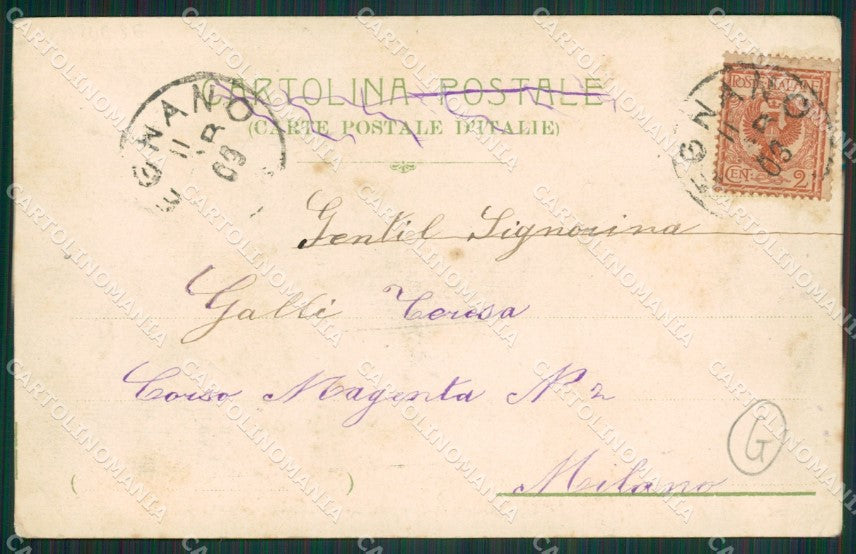 CARTOLINA POSTALE
(CARTE POSTALE D'ITALIE)
EGNANO
11
03
POSTE ITALIANE
CEN. 2
EGNANO
11
03
Gentil Signorina
Galli Teresa
Corso Magenta N° 2
Milano
G
CARTOLINOMANIA